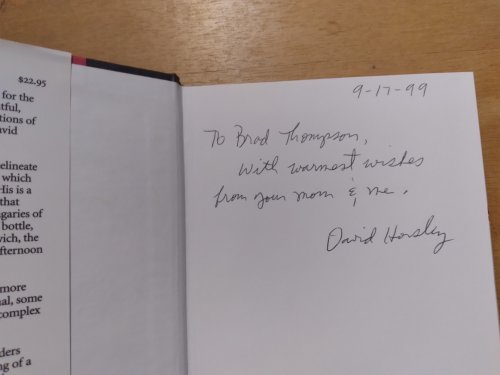 $22.95
for the
tful,
tions of
avid
elineate
which
His is a
that
garies of
bottle,
vich, the
fternoon
more
ual, some
complex
ders
ng of a
9-17-99
To Brad Thompson,
With warmest wishes
from your mom & me.
David Horsley